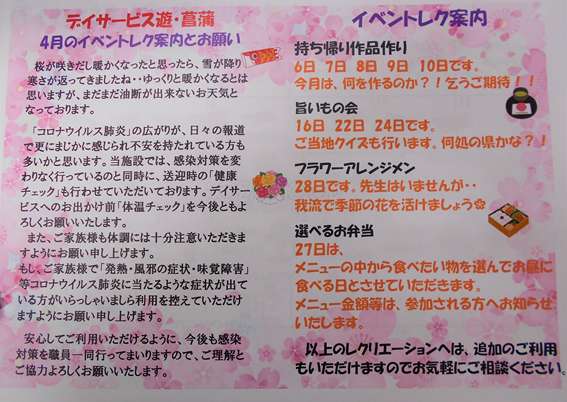 デイサービス遊・菖蒲
4月のイベントレク案内とお願い
桜が咲きだし暖かくなったと思ったら、雪が降り
寒さが返ってきましたね・・ゆっくりと暖かくなるとは
思いますが、まだまだ油断が出来ないお天気と
なっております。
「コロナウイルス肺炎」の広がりが、日々の報道
で更にまじかに感じられ不安を持たれている方も
多いかと思います。当施設では、感染対策を変
わりなく行っているのと同時に、送迎時の「健康
チェック」も行わせていただいております。デイサー
ビスへのお出かけ前「体温チェック」を今後ともよ
ろしくお願いいたします。
また、ご家族様も体調には十分注意いただきま
すようにお願い申し上げます。
もし、ご家族様で「発熱・風邪の症状・味覚障害」
等コロナウイルス肺炎に当たるような症状が出て
ている方がいらっしゃいまし利用を控えていただけ
ますようにお願い申し上げます。
安心してご利用いただけるように、今後も感染
対策を職員一同行ってまいりますので、ご理解と
ご協力よろしくお願いいたします。
イベントレク案内
持ち帰り作品作り
6日 7日 8日 9日 10日です。
今月は、何を作るのか？！乞うご期待！！
旨いもの会
16日 22日 24日です。
ご当地クイズも行います。何処の県かな？！
フラワーアレンジメン
28日です。先生はいませんが・・
我流で季節の花を活けましょう✿
選べるお弁当
27日は、
メニューの中から食べたい物を選んでお昼に
食べる日とさせていただきます。
メニュー金額等は、参加される方へお知らせ
いたします。
以上のレクリエーションへは、追加のご利用
もいただけますのでお気軽にご相談ください。